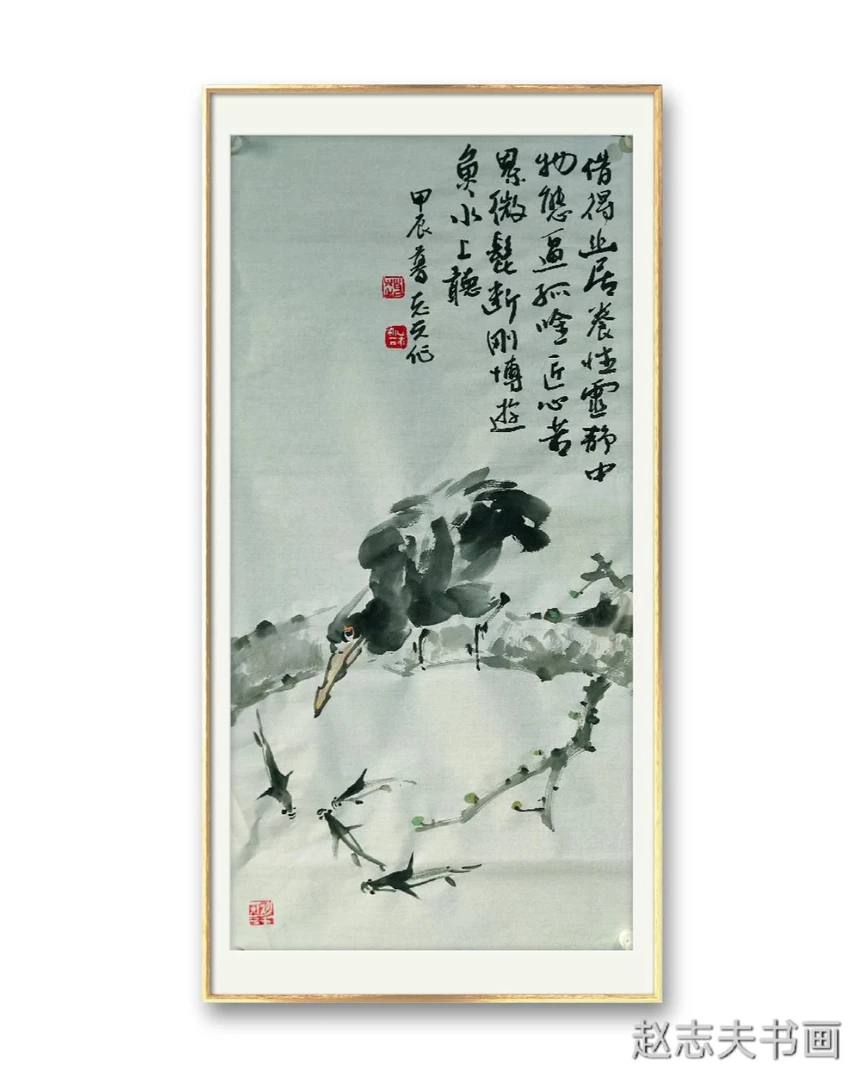 借得幽居養性靈靜中
物態逼孤唫匠心苦
累微髭斷剛博遊
魚水上聽
甲辰志夫作
赵志夫书画